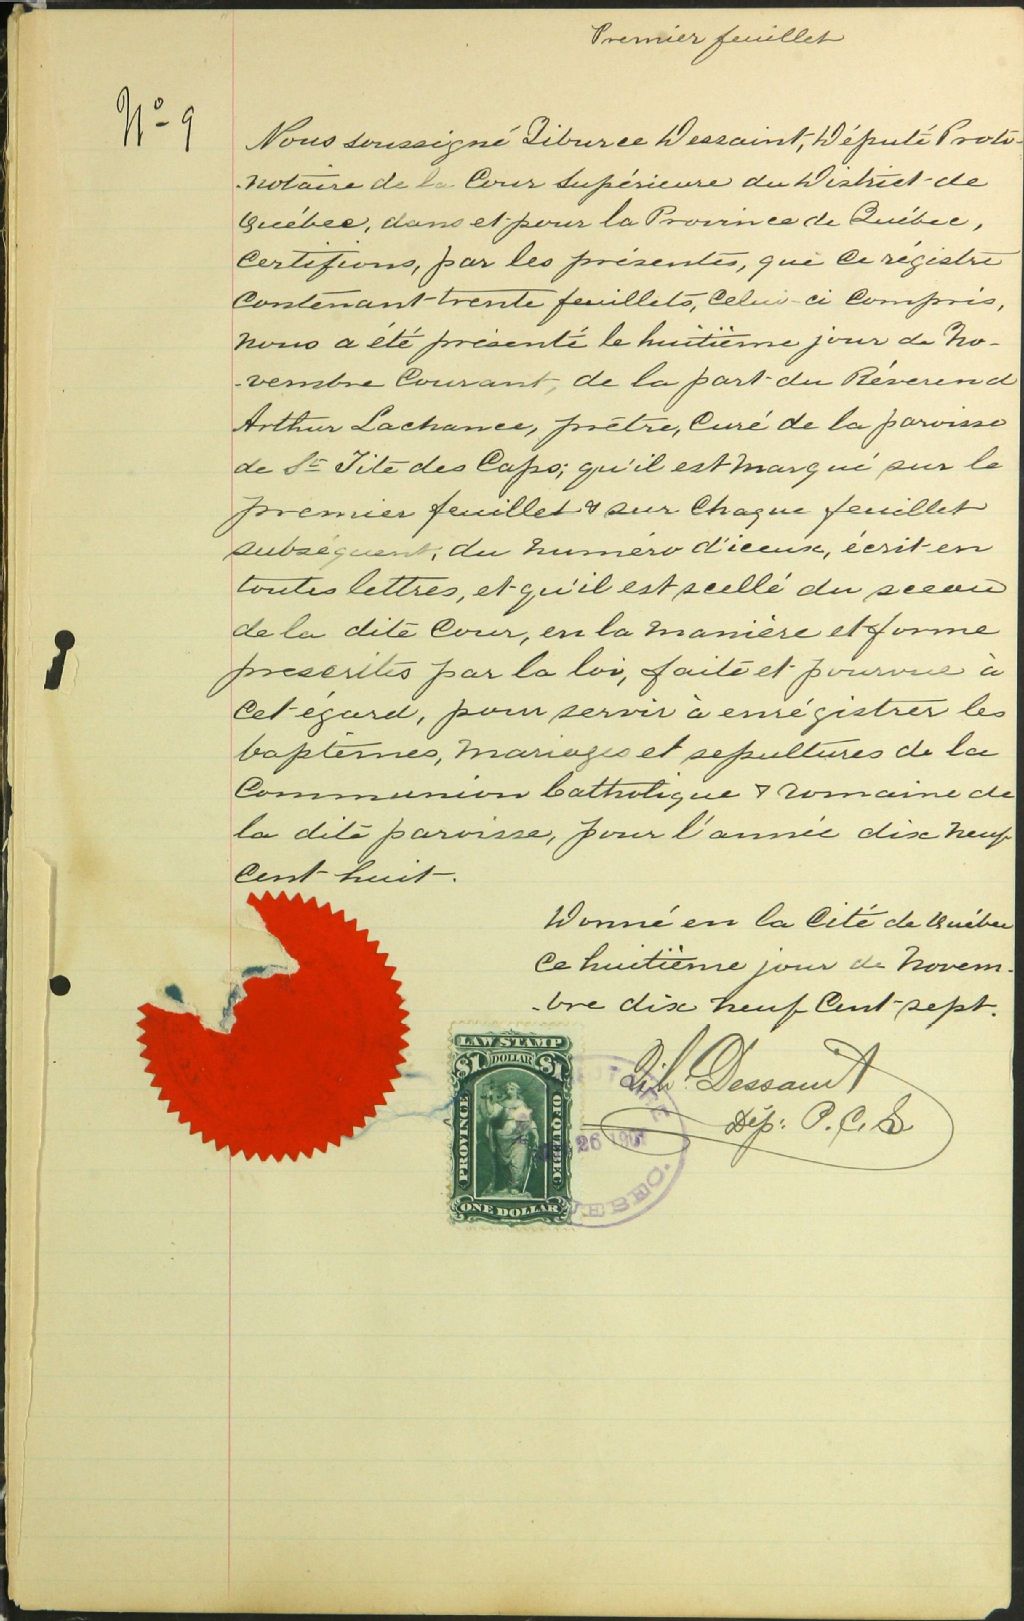 Premier feuillet
No 9
Nous soussigné Tiburce Dessaint, Député Proto-
-notaire de la Cour Supérieure du District de
Québec, dans et pour la Province de Québec,
Certifions, par les présentes, que ce régistre
contenant trente feuillets, celui-ci compris,
nous a été présenté le huitième jour de No-
-vembre courant, de la part du Révérend
Arthur Lachance, prêtre, Curé de la paroisse
de St Tite des Caps; qu'il est marqué sur le
premier feuillet & sur chaque feuillet
subséquent, du numéro d'iceux, écrit en
toutes lettres, et qu'il est scellé du sceau
de la dite Cour, en la manière et forme
prescrites par la loi, faite et pourvue à
cet égard, pour servir à enrégistrer les
baptêmes, mariages et sepultures de la
Communion Catholique & romaine de
la dite paroisse, pour l'année dix neuf
cent huit.
Donné en la Cité de Québec
ce huitième jour de Novem-
-bre dix neuf cent sept.
Tib. Dessaint
Dép: P.C.S.
LAW STAMP
$1 DOLLAR $1
PROVINCE OF QUEBEC
ONE DOLLAR
26 190